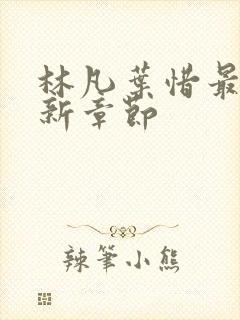 林凡葉惜最
新章節
辣筆小熊